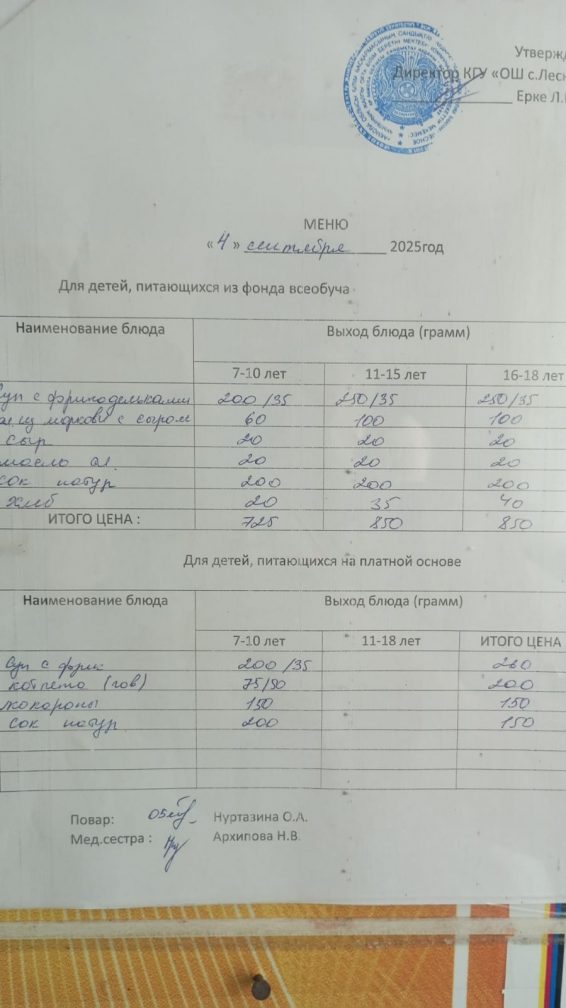 Утвержд
Директор КГУ «ОШ с.Лесн
Ерке Л.
МЕНЮ
« 4 » сентября 2025год
Для детей, питающихся из фонда всеобуча
Наименование блюда Выход блюда (грамм)
7-10 лет 11-15 лет 16-18 лет
Суп с фрикадельками 200/35 250/35 250/35
из моркови с сыром 60 100 100
сыр 20 20 20
масло сл. 20 20 20
сок натур 200 200 200
хлеб 20 35 40
ИТОГО ЦЕНА : 725 850 850
Для детей, питающихся на платной основе
Наименование блюда Выход блюда (грамм)
7-10 лет 11-18 лет ИТОГО ЦЕНА
Суп с фрик 200/35 260
котлета (гов) 75/90 200
макароны 150 150
сок натур 200 150
Повар: Нуртазина О.А.
Мед.сестра : Архипова Н.В.